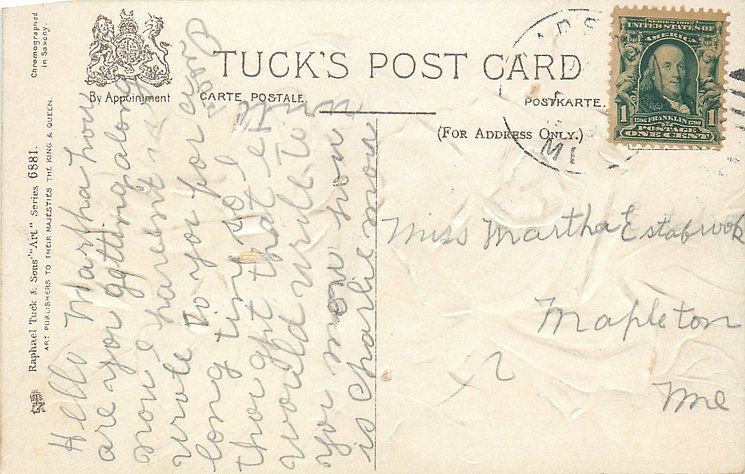 Chromographed
in Saxony.
By Appointment
TUCK'S POST CARD
CARTE POSTALE.
POSTKARTE.
(FOR ADDRESS ONLY.)
SERIES 1902
UNITED STATES OF
AMERICA
1
1706 FRANKLIN 1790
1
POSTAGE
ONE CENT
ME
Raphael Tuck & Sons' "Art" Series 6881.
ART PUBLISHERS TO THEIR MAJESTIES THE KING & QUEEN.
Hello Martha how
are you gettingalong
now I havent
wrote to you for
long tine so I
thorght that I
would write to
you now how
is charlie now
write
soon
Miss Martha Estabrook
Mapleton
Me